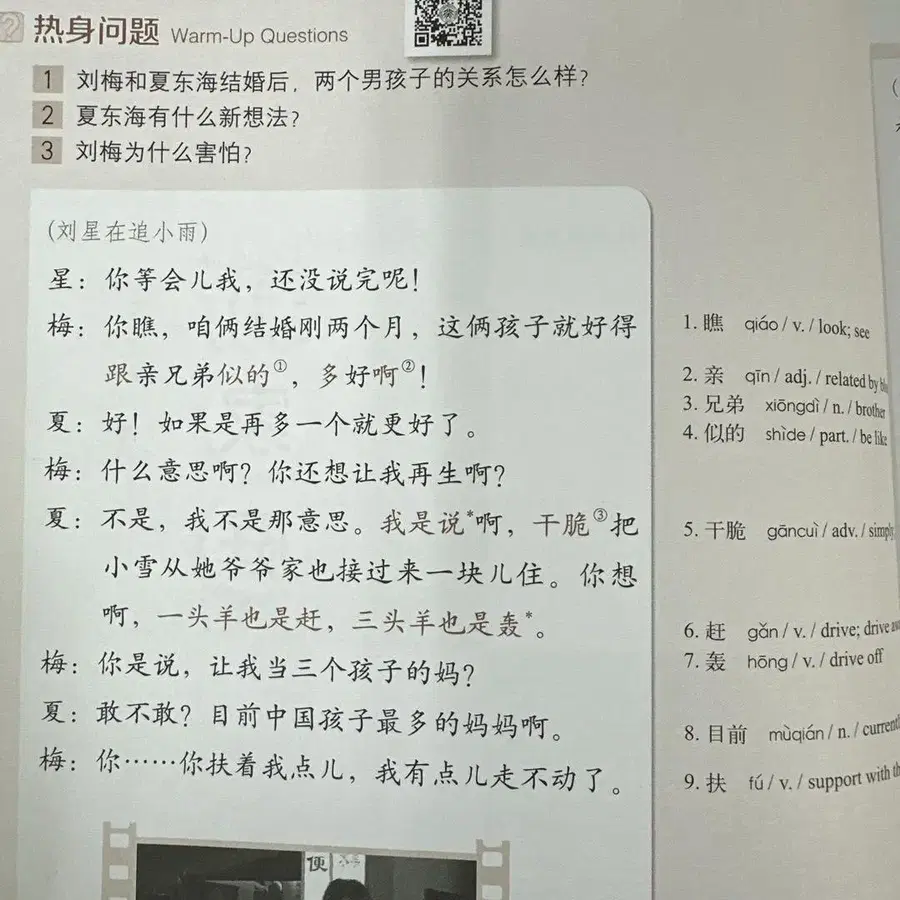 热身问题 Warm-Up Questions
1 刘梅和夏东海结婚后，两个男孩子的关系怎么样？
2 夏东海有什么新想法？
3 刘梅为什么害怕？
（刘星在追小雨）
星：你等会儿我，还没说完呢！
梅：你瞧，咱俩结婚刚两个月，这俩孩子就好得
跟亲兄弟似的①，多好啊②！
夏：好！如果是再多一个就更好了。
梅：什么意思啊？你还想让我再生啊？
夏：不是，我不是那意思。我是说*啊，干脆③把
小雪从她爷爷家也接过来一块儿住。你想
啊，一头羊也是赶，三头羊也是轰*。
梅：你是说，让我当三个孩子的妈？
夏：敢不敢？目前中国孩子最多的妈妈啊。
梅：你……你扶着我点儿，我有点儿走不动了。
1. 瞧 qiáo / v. / look; see
2. 亲 qīn / adj. / related by
3. 兄弟 xiōngdì / n. / brother
4. 似的 shìde / part. / be like
5. 干脆 gāncuì / adv. / simply
6. 赶 gǎn / v. / drive; drive
7. 轰 hōng / v. / drive off
8. 目前 mùqián / n. /
9. 扶 fú / v. / support with
便